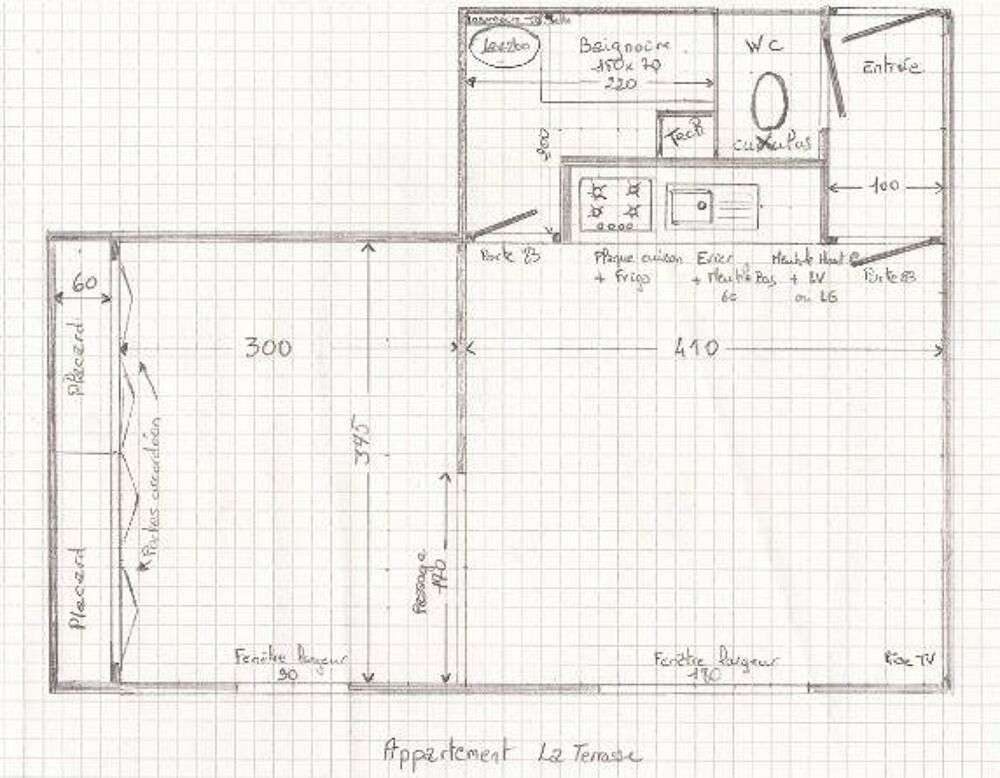 Lavabo
Baignoire
150x70
220
WC
Entrée
Tech
200
100
Porte 83
Plaque cuisson
+ Frigo
Evier
+ Meuble Bas
60
Meuble Haut
+ LV
ou LG
Porte 83
60
Placard
Placard
Portes accordéon
300
345
410
Passage
170
Fenêtre largeur
90
Fenêtre largeur
Prise TV
Appartement La Terrasse